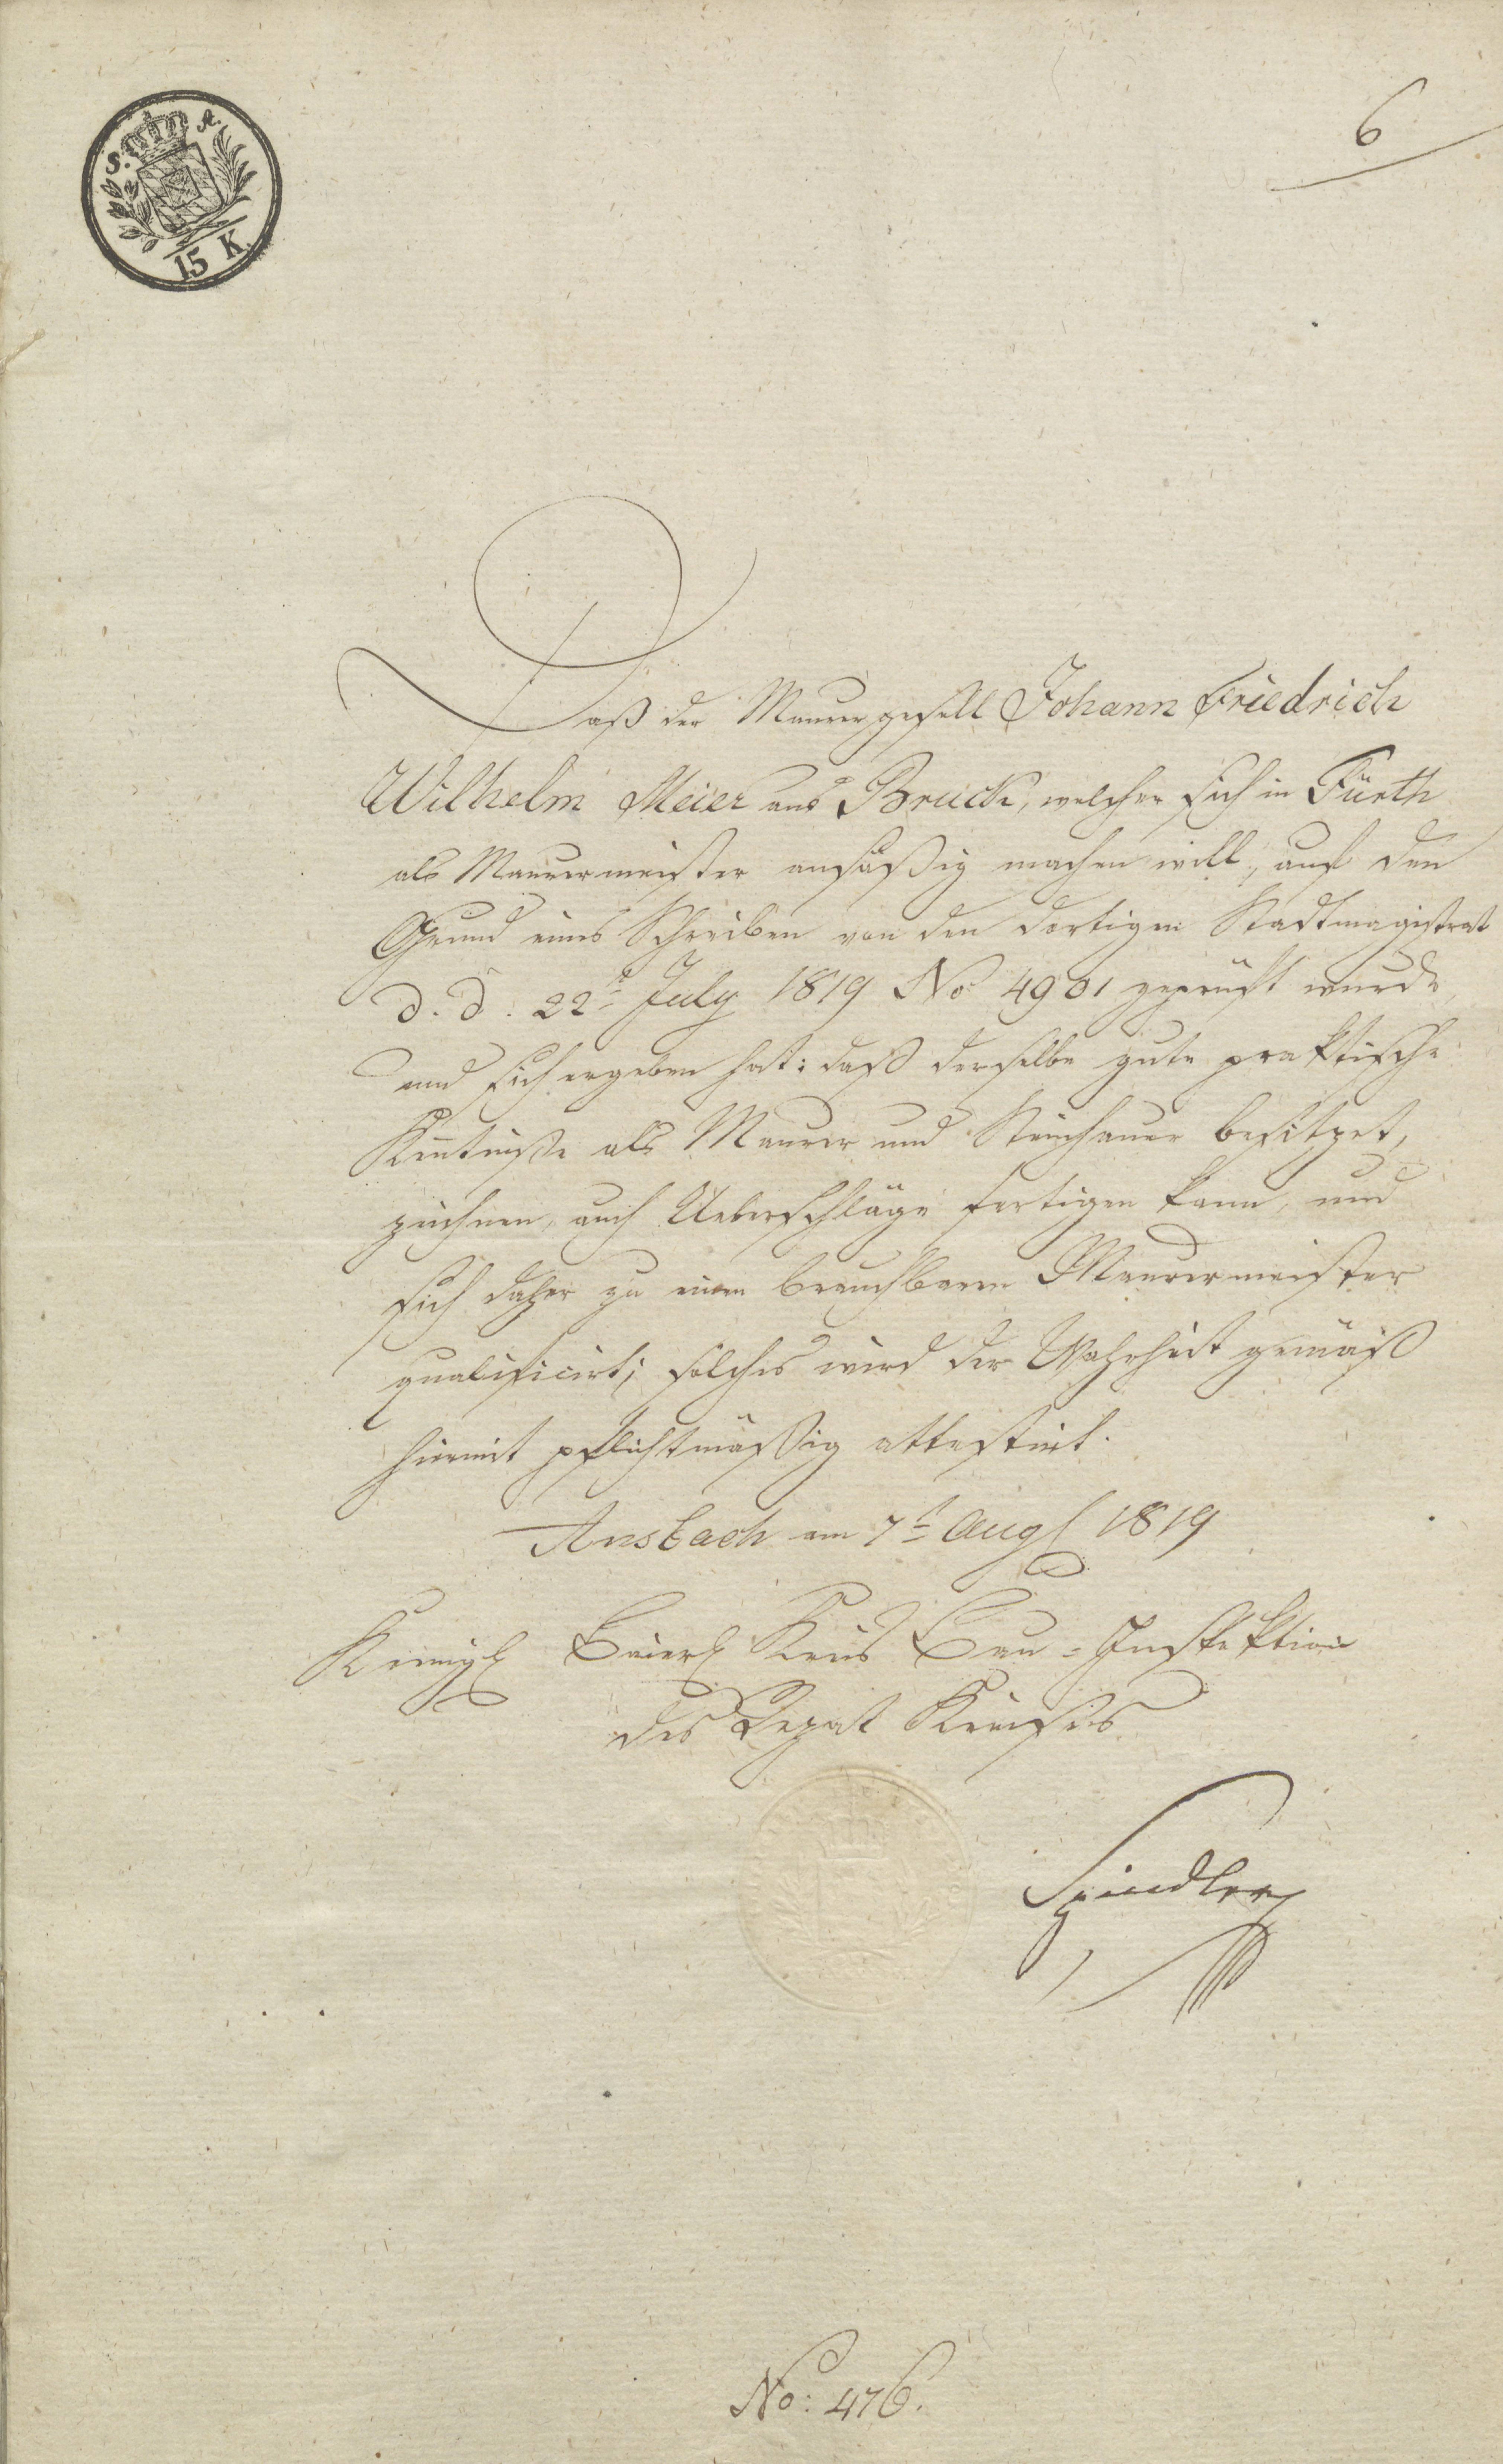 S. A.
15 K.
6
Daß der Maurergesell Johann Friedrich
Wilhelm Meier aus Bruck, welcher sich in Fürth
als Maurermeister ansäßig machen will, auf den
Grund eines Schreiben von den dortigen Stadtmagistrat
d. d. 22t July 1819 No 4901 geprüft wurde,
und sich ergeben hat: daß derselbe gute praktische
Kentniße als Maurer und Steinhauer besitzet,
zeichnen, auch Ueberschläge fertigen kann, und
sich daher zu einen brauchbaren Maurermeister
qualificirt; solches wird der Wahrheit gemäß
hiermit pflichtmäßig attestirt.
Ansbach am 7t Augl 1819
Königl Baierl Kreis Bau-Inspektion
des Rezat Kreises
Spindler
No: 476.